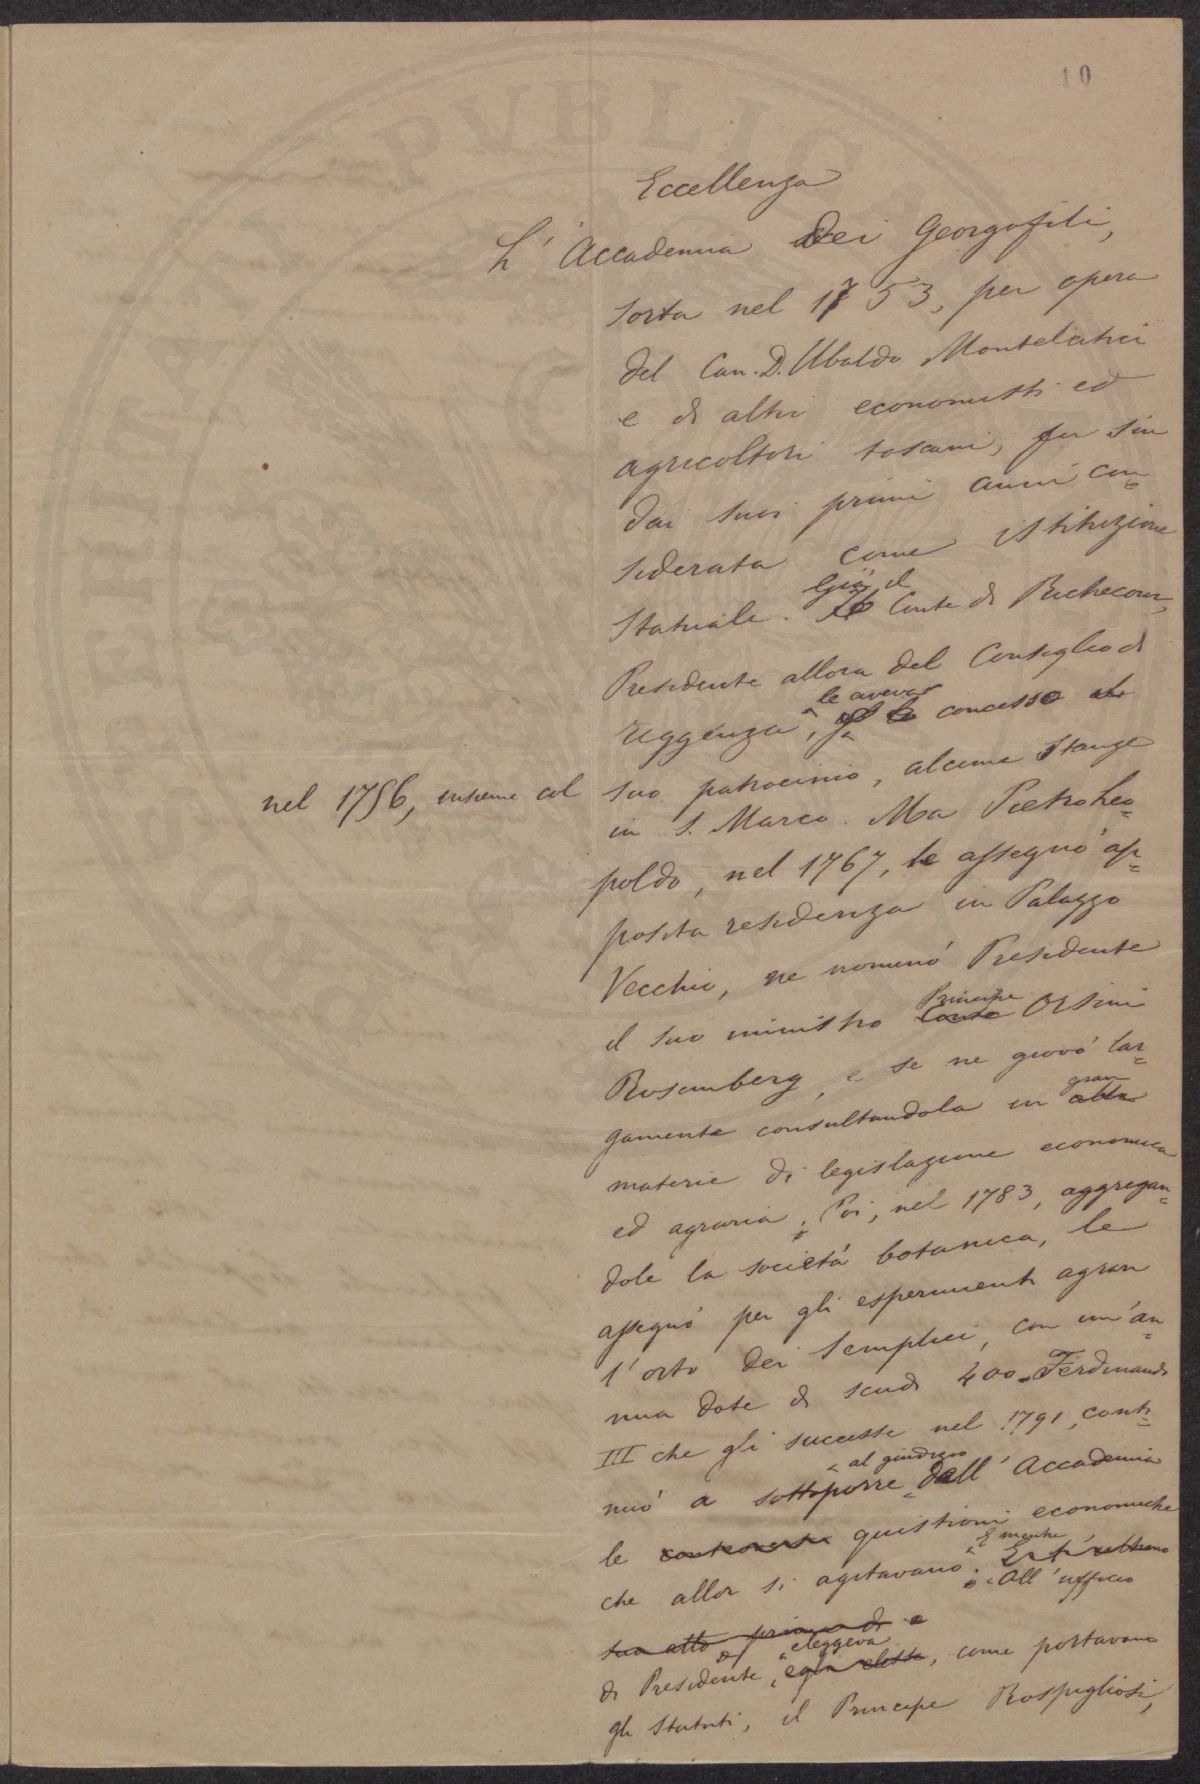 10
Eccellenza
L'Accademia dei Georgofili,
sorta nel 1753, per opera
del Can. D. Ubaldo Montelatici
e di altri economisti ed
agricoltori toscani, fu sin
dai suoi primi anni con=
siderata come istituzione
già il
Statuale. Il Conte di Richecour,
Presidente allora del Consiglio di
le aveva
reggenza, concesso
nel 1756, insieme col
suo patrocinio, alcune stanze
in S. Marco. Ma Pietro Leo=
poldo, nel 1767, le assegnò ap=
posita residenza in Palazzo
Vecchio, ne nominò Presidente
Principe
il suo ministro Conte Orsini
Rosemberg, e se ne giovò lar=
gran
gamente consultandola in altre
materie di legislazione economica
ed agraria. Poi, nel 1783, aggregan=
dole la società botanica, le
assegnò per gli esperimenti agrari
l'orto dei Semplici, con un'an=
nua dote di scudi 400. Ferdinando
III che gli successe nel 1791, conti=
al giudizio
nuò a sottoporre dell'Accademia
le controversie quistioni economiche
E mentre
che allor si agitavano.
all'ufficio
suo atto primo di
eleggeva
di Presidente, egli elesse, come portavano
gli statuti, il Principe Rospigliosi,